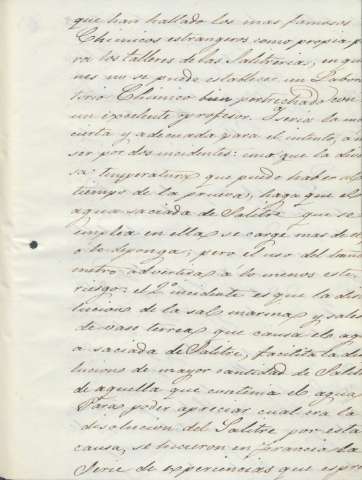 que han hallado los mas famosos
Chimicos estrangeros como propia p
ra los talleres de las Salitrerias, en qu
nes no se puede establecer un Labo
torio Chimico bien pertrechado con
un excelente profesor. Seria la m
curta y adecuada para el intento, a
ser por dos incidentes: uno que la di
sa temperatura que puede haber al
tiempo de la prueba, haga que el
agua saciada de Salitre que se
emplea en ella se carge mas de el
o le deponga; pero el uso del
metro advertira a lo menos este
riesgo: el 2º incidente es que la di
lucion de la sal marina y sales
de vaso terreo que causa el ag
a saciada de Salitre, facilita la di
lucion de mayor cantidad de Salit
de aquella que contenia el agua
Para poder apreciar cual era la
disolucion del Salitre por esta
causa, se hicieron en francia la
Serie de experiencias que espre